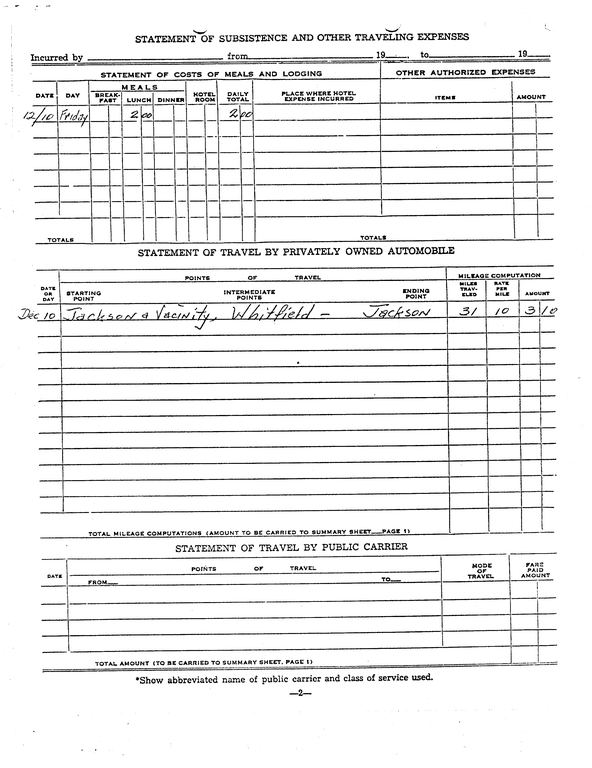 STATEMENT OF SUBSISTENCE AND OTHER TRAVELING EXPENSES
Incurred by from 19 , to 19
STATEMENT OF COSTS OF MEALS AND LODGING OTHER AUTHORIZED EXPENSES
DATE DAY MEALS BREAK-FAST LUNCH DINNER HOTEL ROOM DAILY TOTAL PLACE WHERE HOTEL EXPENSE INCURRED ITEMS AMOUNT
12/10 Friday 2 00 2 00
TOTALS TOTALS
STATEMENT OF TRAVEL BY PRIVATELY OWNED AUTOMOBILE
POINTS OF TRAVEL MILEAGE COMPUTATION
DATE OR DAY STARTING POINT INTERMEDIATE POINTS ENDING POINT MILES TRAV-ELED RATE PER MILE AMOUNT
Dec 10 Jackson & Vacinity, Whitfield - Jackson 31 10 3 10
TOTAL MILEAGE COMPUTATIONS (AMOUNT TO BE CARRIED TO SUMMARY SHEET PAGE 1)
STATEMENT OF TRAVEL BY PUBLIC CARRIER
DATE POINTS OF TRAVEL MODE OF TRAVEL FARE PAID AMOUNT
FROM TO
TOTAL AMOUNT (TO BE CARRIED TO SUMMARY SHEET, PAGE 1)
*Show abbreviated name of public carrier and class of service used.
—2—